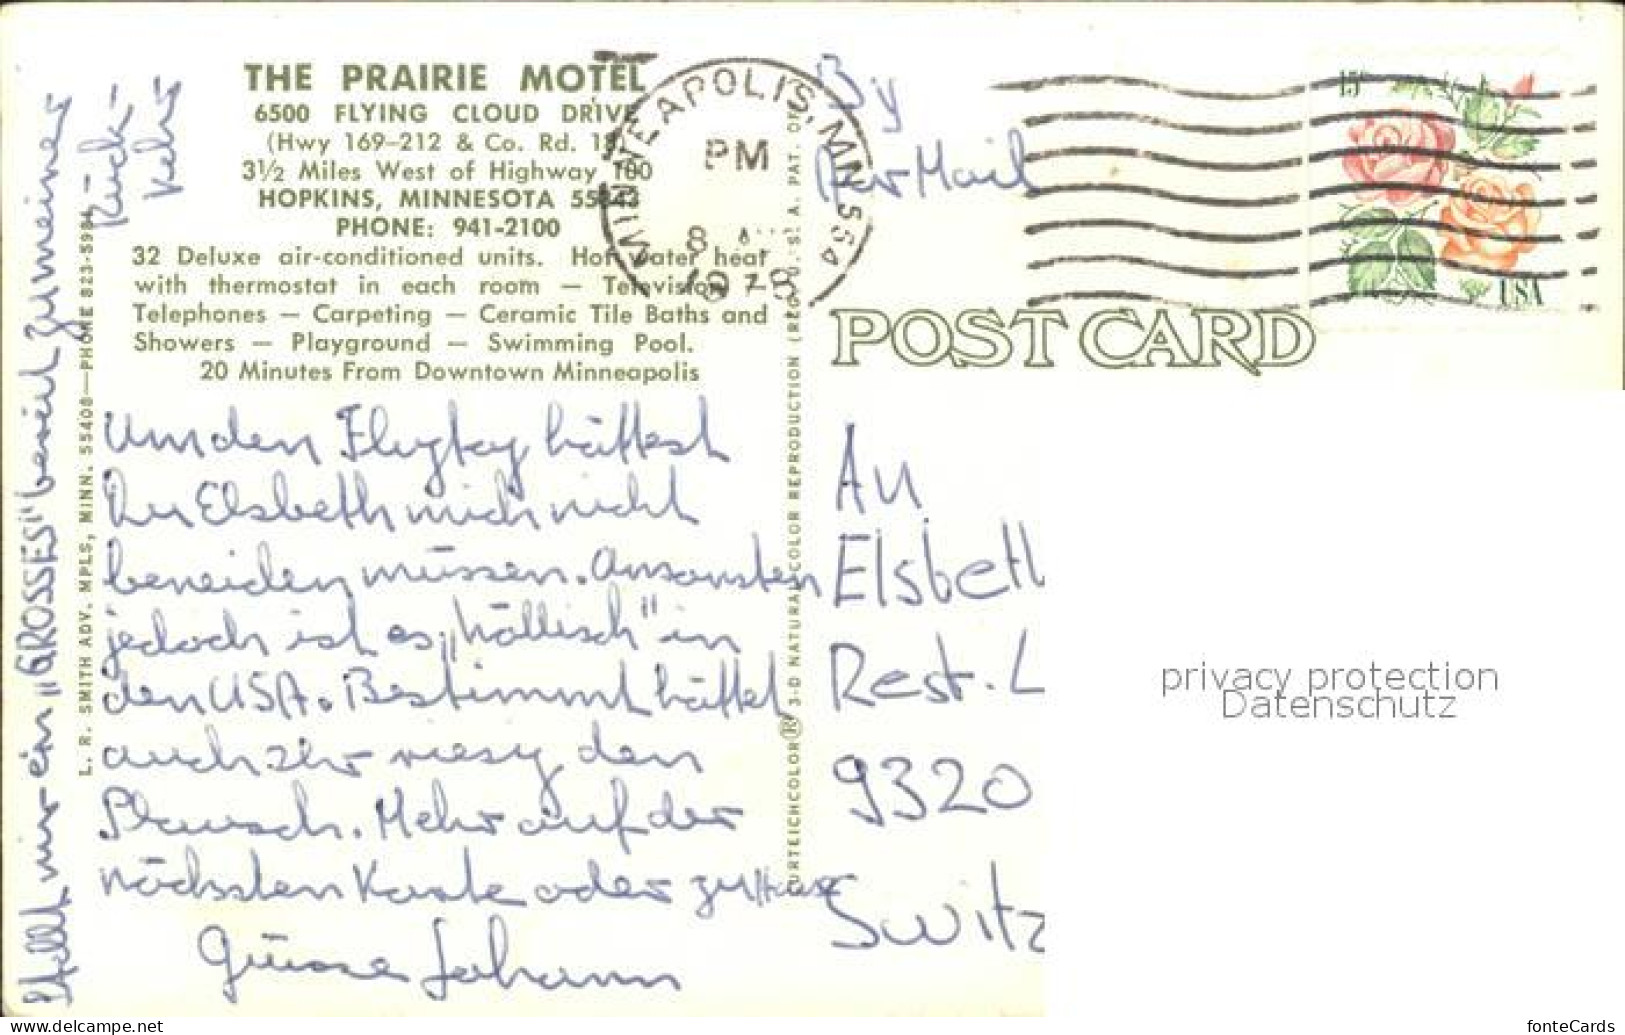 THE PRAIRIE MOTEL
6500 FLYING CLOUD DRIVE
(Hwy 169-212 & Co. Rd. 18)
3½ Miles West of Highway 100
HOPKINS, MINNESOTA 55343
PHONE: 941-2100
32 Deluxe air-conditioned units. Hot water heat
with thermostat in each room — Television —
Telephones — Carpeting — Ceramic Tile Baths and
Showers — Playground — Swimming Pool.
20 Minutes From Downtown Minneapolis
Um den Flugtag hättest
Du Elsbeth mich nicht
beneiden müssen. Ansonsten
jedoch ist es „höllisch" in
den USA. Bestimmt hättet
auch Ihr riesig den
Plausch. Mehr auf der
nächsten Karte oder zu Hause
Grüsse Johann
Stellt mir ein „GROSSES" bereit zu meiner
Rück-
kehr
L. R. SMITH ADV. MPLS, MINN. 55408—PHONE 823-5984
CURTEICHCOLOR® 3-D NATURAL COLOR REPRODUCTION (REG. U. S. A. PAT. OF
MINNEAPOLIS, MN 554
PM
8
1978
By
Air Mail
15c
USA
POST CARD
An
Elsbeth
Rest. L
9320
Switz
privacy protection
Datenschutz
fonteCards
www.delcampe.net